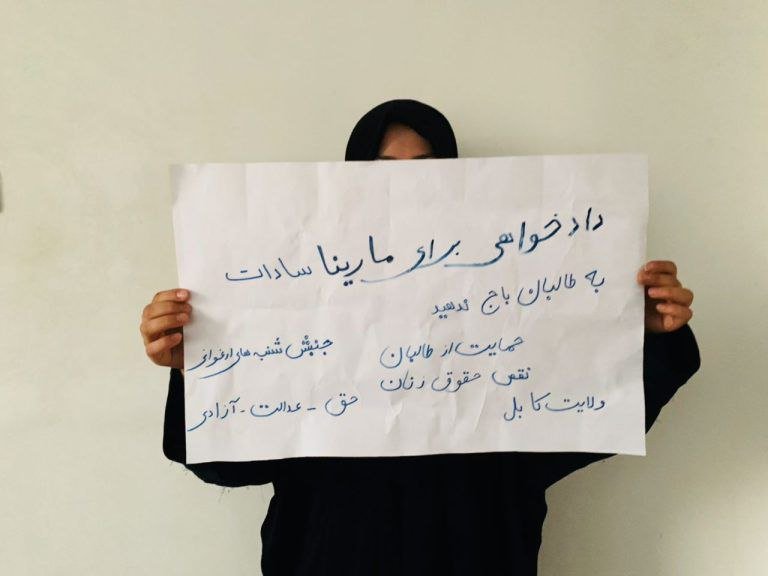 دادخواهی برای مارینا سادات
به طالبان باج ندهید
حمایت از طالبان
نقص حقوق زنان
ولایت کابل
جنبش شنبه های ارغوانی
حق - عدالت - آزادی